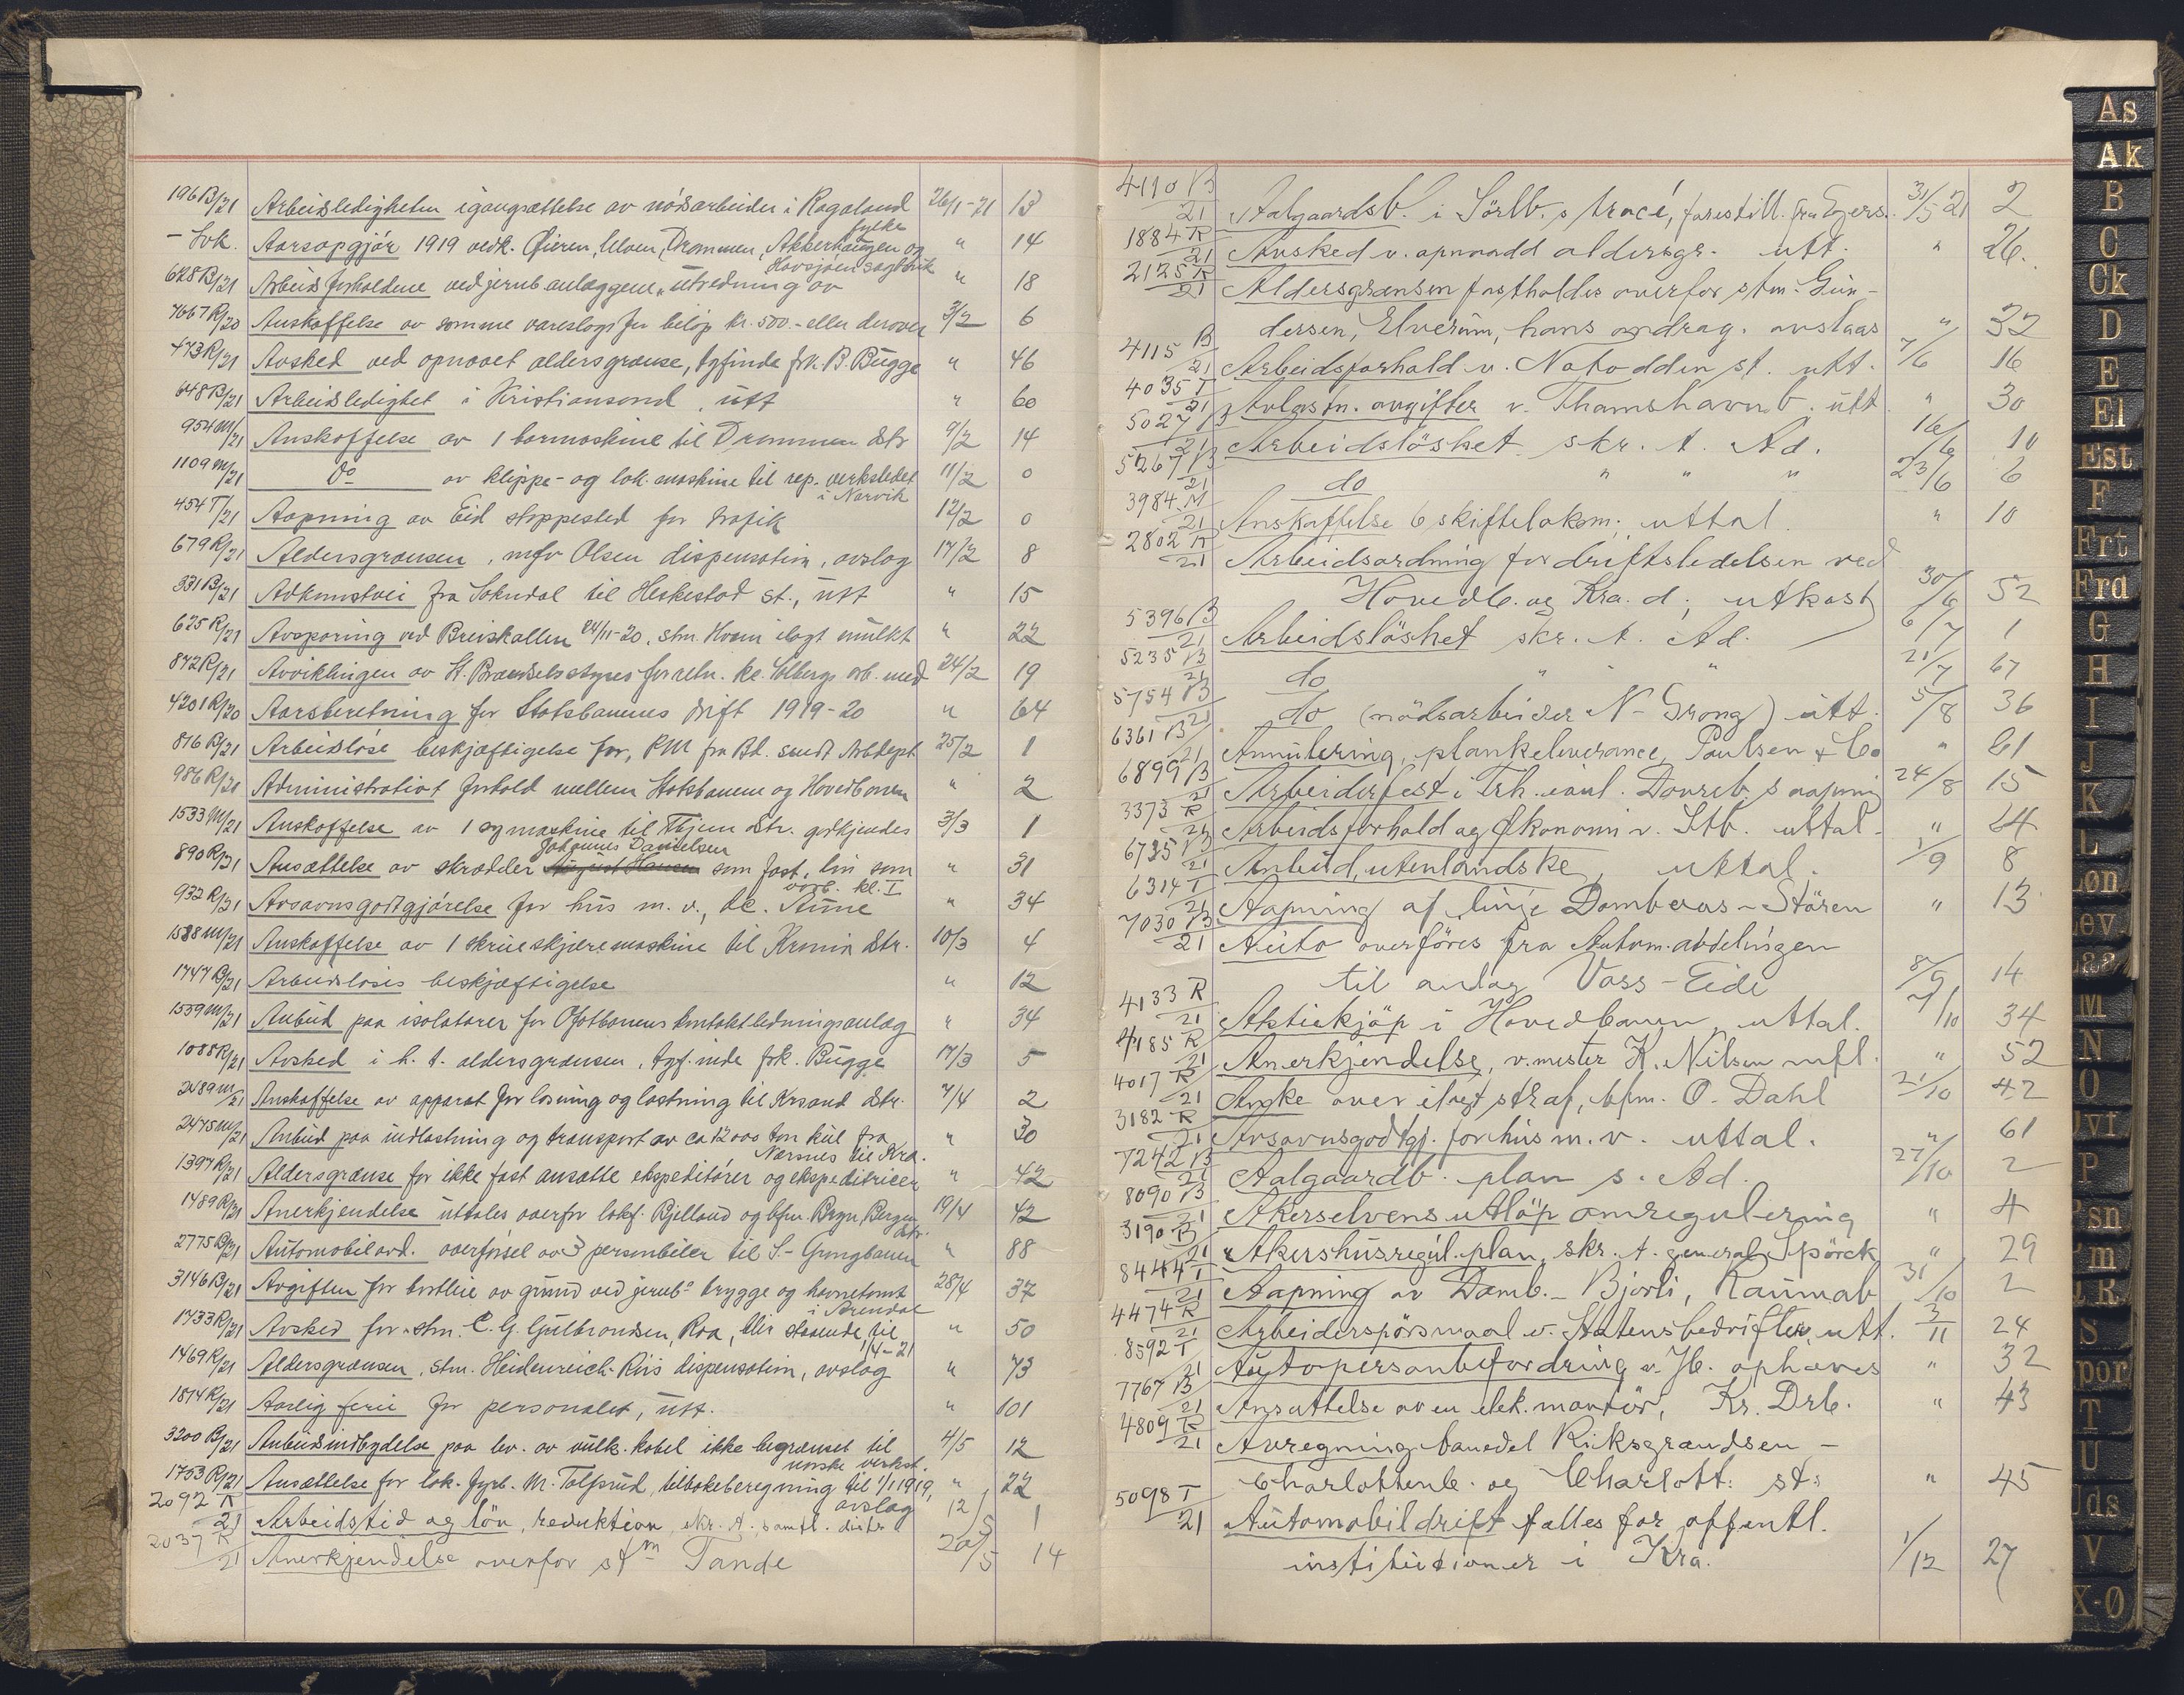 196 B/21 Arbeidsledigheten igangsættelse av nödsarbeider i Rogaland fylke 26/1-21 13
- Sek. Aarsopgjör 1919 vedk. Öieren, Ulven, Drammen, Akkerhaugen og Havsjöen sagbruk " 14
628 B/21 Arbeidsforholdene ved jernb.anlæggene, utredning av " 18
7667 R/20 Anskaffelse av samme vareslags for beløp kr. 500.- eller derover 3/2 6
473 R/21 Avsked ved opnaaet aldersgrænse, tgfinde frk. B. Bugge " 46
648 B/21 Arbeidsledighet i Kristiansand, utt " 60
954 M/21 Anskaffelse av 1 bormaskine til Drammen dstr 9/2 14
1109 M/21 Do av klippe- og lok. maskine til rep. verkstedet i Narvik 11/2 0
454 T/21 Aapning av Eid stoppested for trafik 12/2 0
679 R/21 Aldersgrænsen, mfv Olsen dispensation, avslag 17/2 8
331 B/21 Adkomstvei fra Sokndal til Heskestad st., utt " 15
625 R/21 Avsporing ved Breiskallen 24/11-20, stm. Hvam ilagt mulkt " 22
872 R/21 Avviklingen av St. Brændselsstyres forretn. kc. Solbergs arb. med 24/2 19
4201 R/20 Aarsberetning for Statsbanenes drift 1919-20 " 64
816 B/21 Arbeidsløse beskjæftigelse for, PM fra Bd. sendt Arbdept 25/2 1
986 R/21 Administrativt forhold mellem Statsbanene og Hovedbanen " 2
1533 M/21 Anskaffelse av 1 symaskine til Thjem dstr. godkjendes 3/3 1
890 R/21 Ansættelse av skrædder Johannes Danielsen August Hansen som fast, lön som arb. kl. I " 31
932 R/21 Avsavnsgodtgjörelse for hus m. v., bc. Aune " 34
1588 M/21 Anskaffelse av 1 skrueskjæremaskine til Kronia dstr. 10/3 4
1747 B/21 Arbeidsløses beskjæftigelse " 12
1539 M/21 Anbud paa isolatorer for Ofotbanens kontaktledningsanlæg " 34
1088 R/21 Avsked i h. t. aldersgrænsen, tgf.inde frk. Bugge 17/3 5
2489 M/21 Anskaffelse av apparat for losning og lastning til Krsand dstr. 7/4 2
2475 M/21 Anbud paa indlastning og transport av ca 12000 ton kul fra Nærsnes til Kra. " 30
1397 R/21 Aldersgrænse for ikke fast ansatte ekspeditörer og ekspeditricer " 42
1489 R/21 Anerkjendelse uttales overfor lokf. Bjelland og bfm. Bryn, Bergen dstr. 19/4 42
2775 B/21 Automobilavd. overförsel av 3 personbiler til S.-Grongbanen " 88
3146 B/21 Avgiften for bortleie av grund ved jernb. brygge og havnetomt i Arendal 28/4 37
1733 R/21 Avsked for stm. C. G. Gulbrandsen, Roa, blir staaende til 1/4-21 " 50
1469 R/21 Aldersgrænsen, stm. Heidenreich-Riis dispensation, avslag " 73
1814 R/21 Aarlig ferie for personalet, utt. " 101
3200 B/21 Anbudsindbydelse paa lev. av vulk. kabel ikke begrænset til norske verkst. 4/5 12
1753 R/21 Ansættelse for lok. fyrb. M. Tolfsrud, tilbakeberegning til 1/1 1919, avslag " 22
2092 R/21 Arbeidstid og lön, reduktion, skr. t. samtl. distr. 12/5 1
2037 R/21 Anerkjendelse overfor stm Tande 20/5 14
4110 B/21 Aalgaardsb. i Sörlb.s tracé, forestill. fra Egers. 31/5 21 2
1884 R/21 Avsked v. opnaadd aldersgr. utt. " 26.
2125 R/21 Aldersgrænsen fastholdes overfor stm. Gun-
dersen, Elverum, hans andrag. avslaas " 32
4115 B/21 Arbeidsforhold v. Notodden st. utt. 7/6 16
4035 T/21 Anlægsm. avgifter v. Thamshavnb. utt " 30
5027 B/21 Arbeidslöshet skr. t. Ad. 16/6 10
5267 B/21 do " " " 23/6 6
3984 M/21 Anskaffelse 6 skiftelokom; uttal. " 10
2802 R/21 Arbeidsordning for driftsledelsen ved
Hovedb. og Kra. d; utkast 30/6 52
5396 B/21 Arbeidslöshet skr. t. Ad. 6/7 1
5235 B/21 do " " " 21/7 67
5754 B/21 do (nödsarbeider N-Grong) utt. 5/8 36
6361 B/21 Annulering, plankeleverance, Paulsen & Co " 61
6899 B/21 Arbeiderfest i Trh. eanl. Dovreb.s aapning 24/8 15
3373 R/21 Arbeidsforhold og Ökonomi v. Stb. uttal. " 24
6725 B/21 Anbud, utenlandske, uttal. 1/9 8
6314 T/21 Aapning af linje Dombaas-Stören " 13
7030 B/21 Auto overföres fra Autom.avdelingen
til anlæg Voss-Eide 8/9 14
4133 R/21 Aktiekjöp i Hovedbanen, uttal. 7/10 34
4185 R/21 Anerkjendelse, v.mester K. Nilsen mfl. " 52
4017 R/21 Anke over ilagt straf, bfm. O. Dahl 21/10 42
3182 R/21 Avsavnsgodtgj. for hus m. v. uttal. " 61
7242 B/21 Aalgaardb. plan s. Ad. 27/10 2
8090 B/21 Akerselvens utlöp omregulering " 4
3190 B/21 Akershusregul.plan, skr. t. general Spörck " 29
8444 T/21 Aapning av Domb.-Bjorli, Raumab 31/10 2
4474 R/21 Arbeiderspörsmaal v. Statensbedrifter, utt. 3/11 24
8592 T/21 Autopersonbefordring v. Jb. ophæves " 32
7767 B/21 Ansættelse av en elek. montör, Kr. Drb. " 43
4809 R/21 Avregning banedel Riksgrændsen -
Charlottenb. og Charlott. st: " 45
5098 T/21 Automobildrift fælles for offentl.
institutioner i Kra. 1/12 27
As
Ak
B
C
Ck
D
E
El
Est
F
Frt
Frd
G
H
I
J
K
L
Løn
Lev
Laa
M
N
O
P
Psn
R
S
Spor
T
U
Uds
V
X-Ø